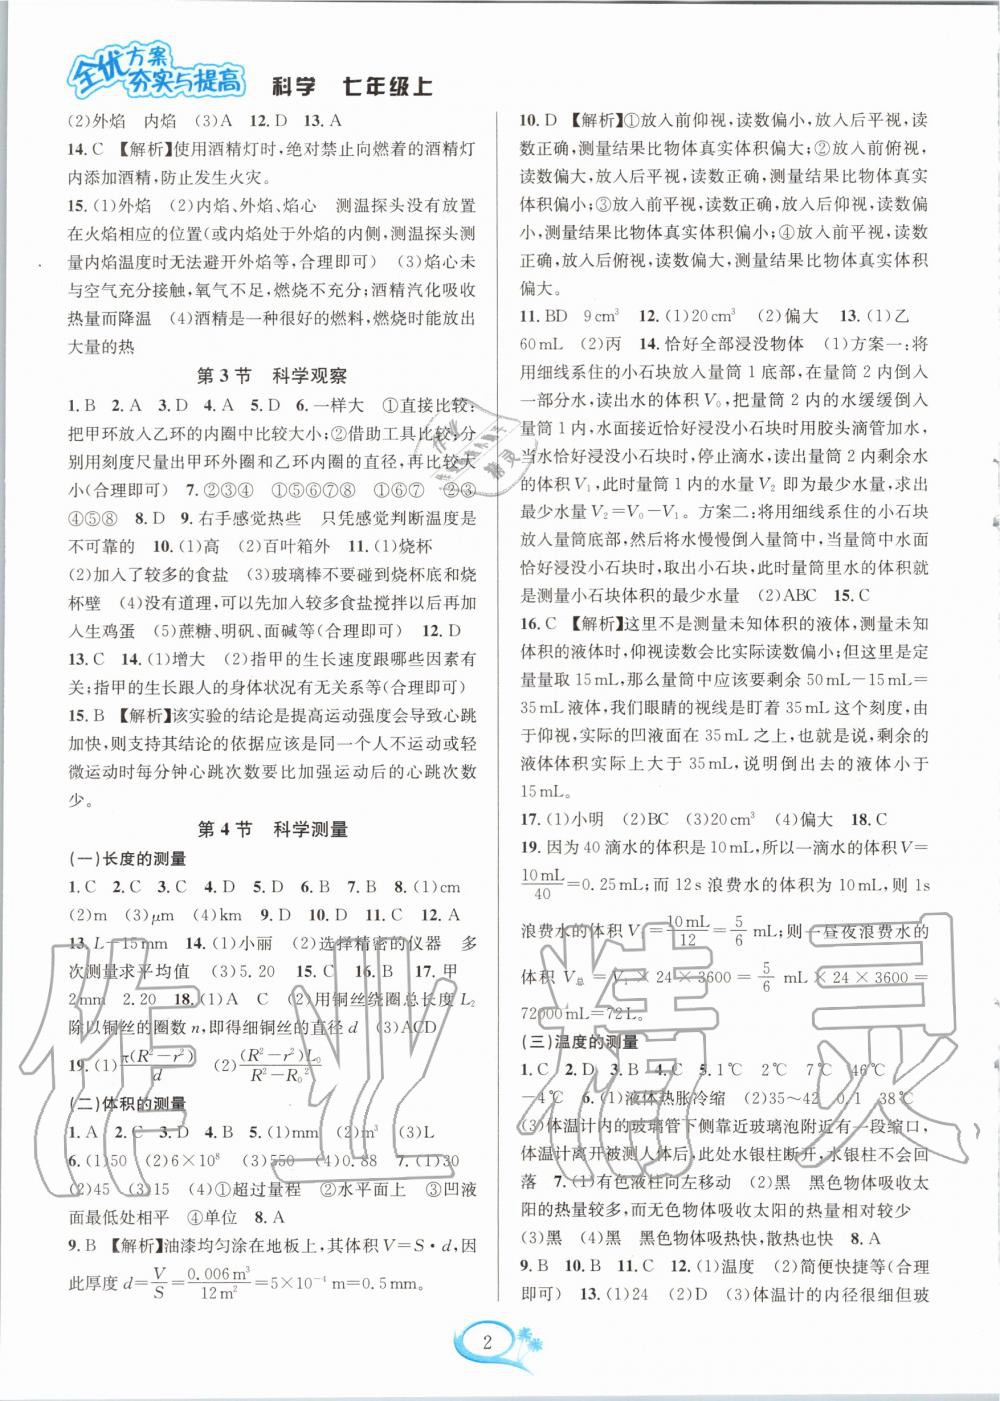 全优方案
夯实与提高
科学 七年级上
(2)外焰 内焰 (3)A 12. D 13. A
14. C 【解析】使用酒精灯时,绝对禁止向燃着的酒精灯
内添加酒精,防止发生火灾。
15. (1)外焰 (2)内焰、外焰、焰心 测温探头没有放置
在火焰相应的位置(或内焰处于外焰的内侧,测温探头测
量内焰温度时无法避开外焰等,合理即可) (3)焰心未
与空气充分接触,氧气不足,燃烧不充分;酒精汽化吸收
热量而降温 (4)酒精是一种很好的燃料,燃烧时能放出
大量的热
第 3 节 科学观察
1. B 2. A 3. D 4. A 5. D 6. 一样大 ①直接比较:
把甲环放入乙环的内圈中比较大小;②借助工具比较:分
别用刻度尺量出甲环外圈和乙环内圈的直径,再比较大
小(合理即可) 7. ②③④ ①⑤⑥⑦⑧ ①⑥⑦ ②③
④⑤⑧ 8. D 9. 右手感觉热些 只凭感觉判断温度是
不可靠的 10. (1)高 (2)百叶箱外 11. (1)烧杯
(2)加入了较多的食盐 (3)玻璃棒不要碰到烧杯底和烧
杯壁 (4)没有道理,可以先加入较多食盐搅拌以后再加
入生鸡蛋 (5)蔗糖、明矾、面碱等(合理即可) 12. D
13. C 14. (1)增大 (2)指甲的生长速度跟哪些因素有
关;指甲的生长跟人的身体状况有无关系等(合理即可)
15. B 【解析】该实验的结论是提高运动强度会导致心跳
加快,则支持其结论的依据应该是同一个人不运动或轻
微运动时每分钟心跳次数要比加强运动后的心跳次数
少。
第 4 节 科学测量
(一)长度的测量
1. C 2. C 3. C 4. D 5. D 6. B 7. D 8. (1)cm
(2)m (3)μm (4)km 9. D 10. D 11. C 12. A
13. L-15mm 14. (1)小丽 (2)选择精密的仪器 多
次测量求平均值 (3)5.20 15. C 16. B 17. 甲
2mm 2.20 18. (1)A C (2)用铜丝绕圈总长度 L₂
除以铜丝的圈数 n,即得细铜丝的直径 d (3)ACD
19. (1)π(R²-r²)/d (2)(R²-r²)L₀/(R²-R₀²)
(二)体积的测量
1. A 2. C 3. D 4. B 5. (1)mm (2)m³ (3)L
6. (1)50 (2)6×10⁸ (3)550 (4)0.88 7. (1)30
(2)45 (3)15 (4)①超过量程 ②水平面上 ③凹液
面最低处相平 ④单位 8. A
9. B 【解析】油漆均匀涂在地板上,其体积 V=S·d,因
此厚度 d=V/S=0.006m³/12m²=5×10⁻⁴ m=0.5mm。
10. D 【解析】①放入前仰视,读数偏小,放入后平视,读
数正确,测量结果比物体真实体积偏大;②放入前俯视,
读数偏大,放入后平视,读数正确,测量结果比物体真实
体积偏小;③放入前平视,读数正确,放入后仰视,读数偏
小,测量结果比物体真实体积偏小;④放入前平视,读数
正确,放入后俯视,读数偏大,测量结果比物体真实体积
偏大。
11. BD 9cm³ 12. (1)20cm³ (2)偏大 13. (1)乙
60mL (2)丙 14. 恰好全部浸没物体 (1)方案一:将
用细线系住的小石块放入量筒 1 底部,在量筒 2 内倒入
一部分水,读出水的体积 V₀,把量筒 2 内的水缓缓倒入
量筒 1,水面接近恰好浸没小石块时用胶头滴管加水,
当水恰好浸没小石块时,停止滴水,读出量筒 2 内剩余水
的体积 V₁,此时量筒 1 的水量 V₂ 即为最少水量,求出
最少水量 V₂=V₀-V₁。方案二:将用细线系住的小石块
放入量筒底部,然后将水慢慢倒入量筒中,当量筒中水面
恰好浸没小石块时,取出小石块,此时量筒里水的体积就
是测量小石块体积的最少水量 (2)ABC 15. C
16. C 【解析】这里不是测量未知体积的液体,测量未知
体积的液体时,仰视读数会比实际读数偏小;但这里是定
量量取 15mL,那么量筒中应该要剩余 50mL-15mL=
35mL 液体,我们眼睛的视线是盯着 35mL 这个刻度,由
于仰视,实际的凹液面在 35mL 之上,也就是,剩余的
液体体积实际上大于 35mL,说明倒出去的液体小于
15mL。
17. (1)小明 (2)BC (3)20cm³ (4)偏大 18. C
19. 因为 40 滴水的体积是 10mL,所以一滴水的体积 V=
10mL/40=0.25mL;而 12s 浪费水的体积为 10mL,则 1s
浪费水的体积 V₁=10mL/12=5/6 mL;则一昼夜浪费水的
体积 V总=V₁×24×3600=5/6 mL×24×3600=
72000mL=72L。
(三)温度的测量
1. C 2. D 3. B 4. C 5. 1℃ 2℃ 7℃ 46℃
-4℃ 6. (1)液体热胀冷缩 (2)35~42 0.1 38℃
(3)体温计内的玻璃管下侧靠近玻璃泡附近有一段缩口,
体温计离开被测人体后,此处水银柱断开,水银柱不会回
落 7. (1)有色液柱向左移动 (2)黑 黑色物体吸收太
阳的热量较多,而无色物体吸收太阳的热量相对较少
(3)黑 (4)黑 黑色物体吸热快,散热也快 8. A
9. B 10. B 11. C 12. (1)温度 (2)简便快捷等(合理
即可) 13. (1)24 (2)D (3)体温计的内径很细但玻
2
作业精灵